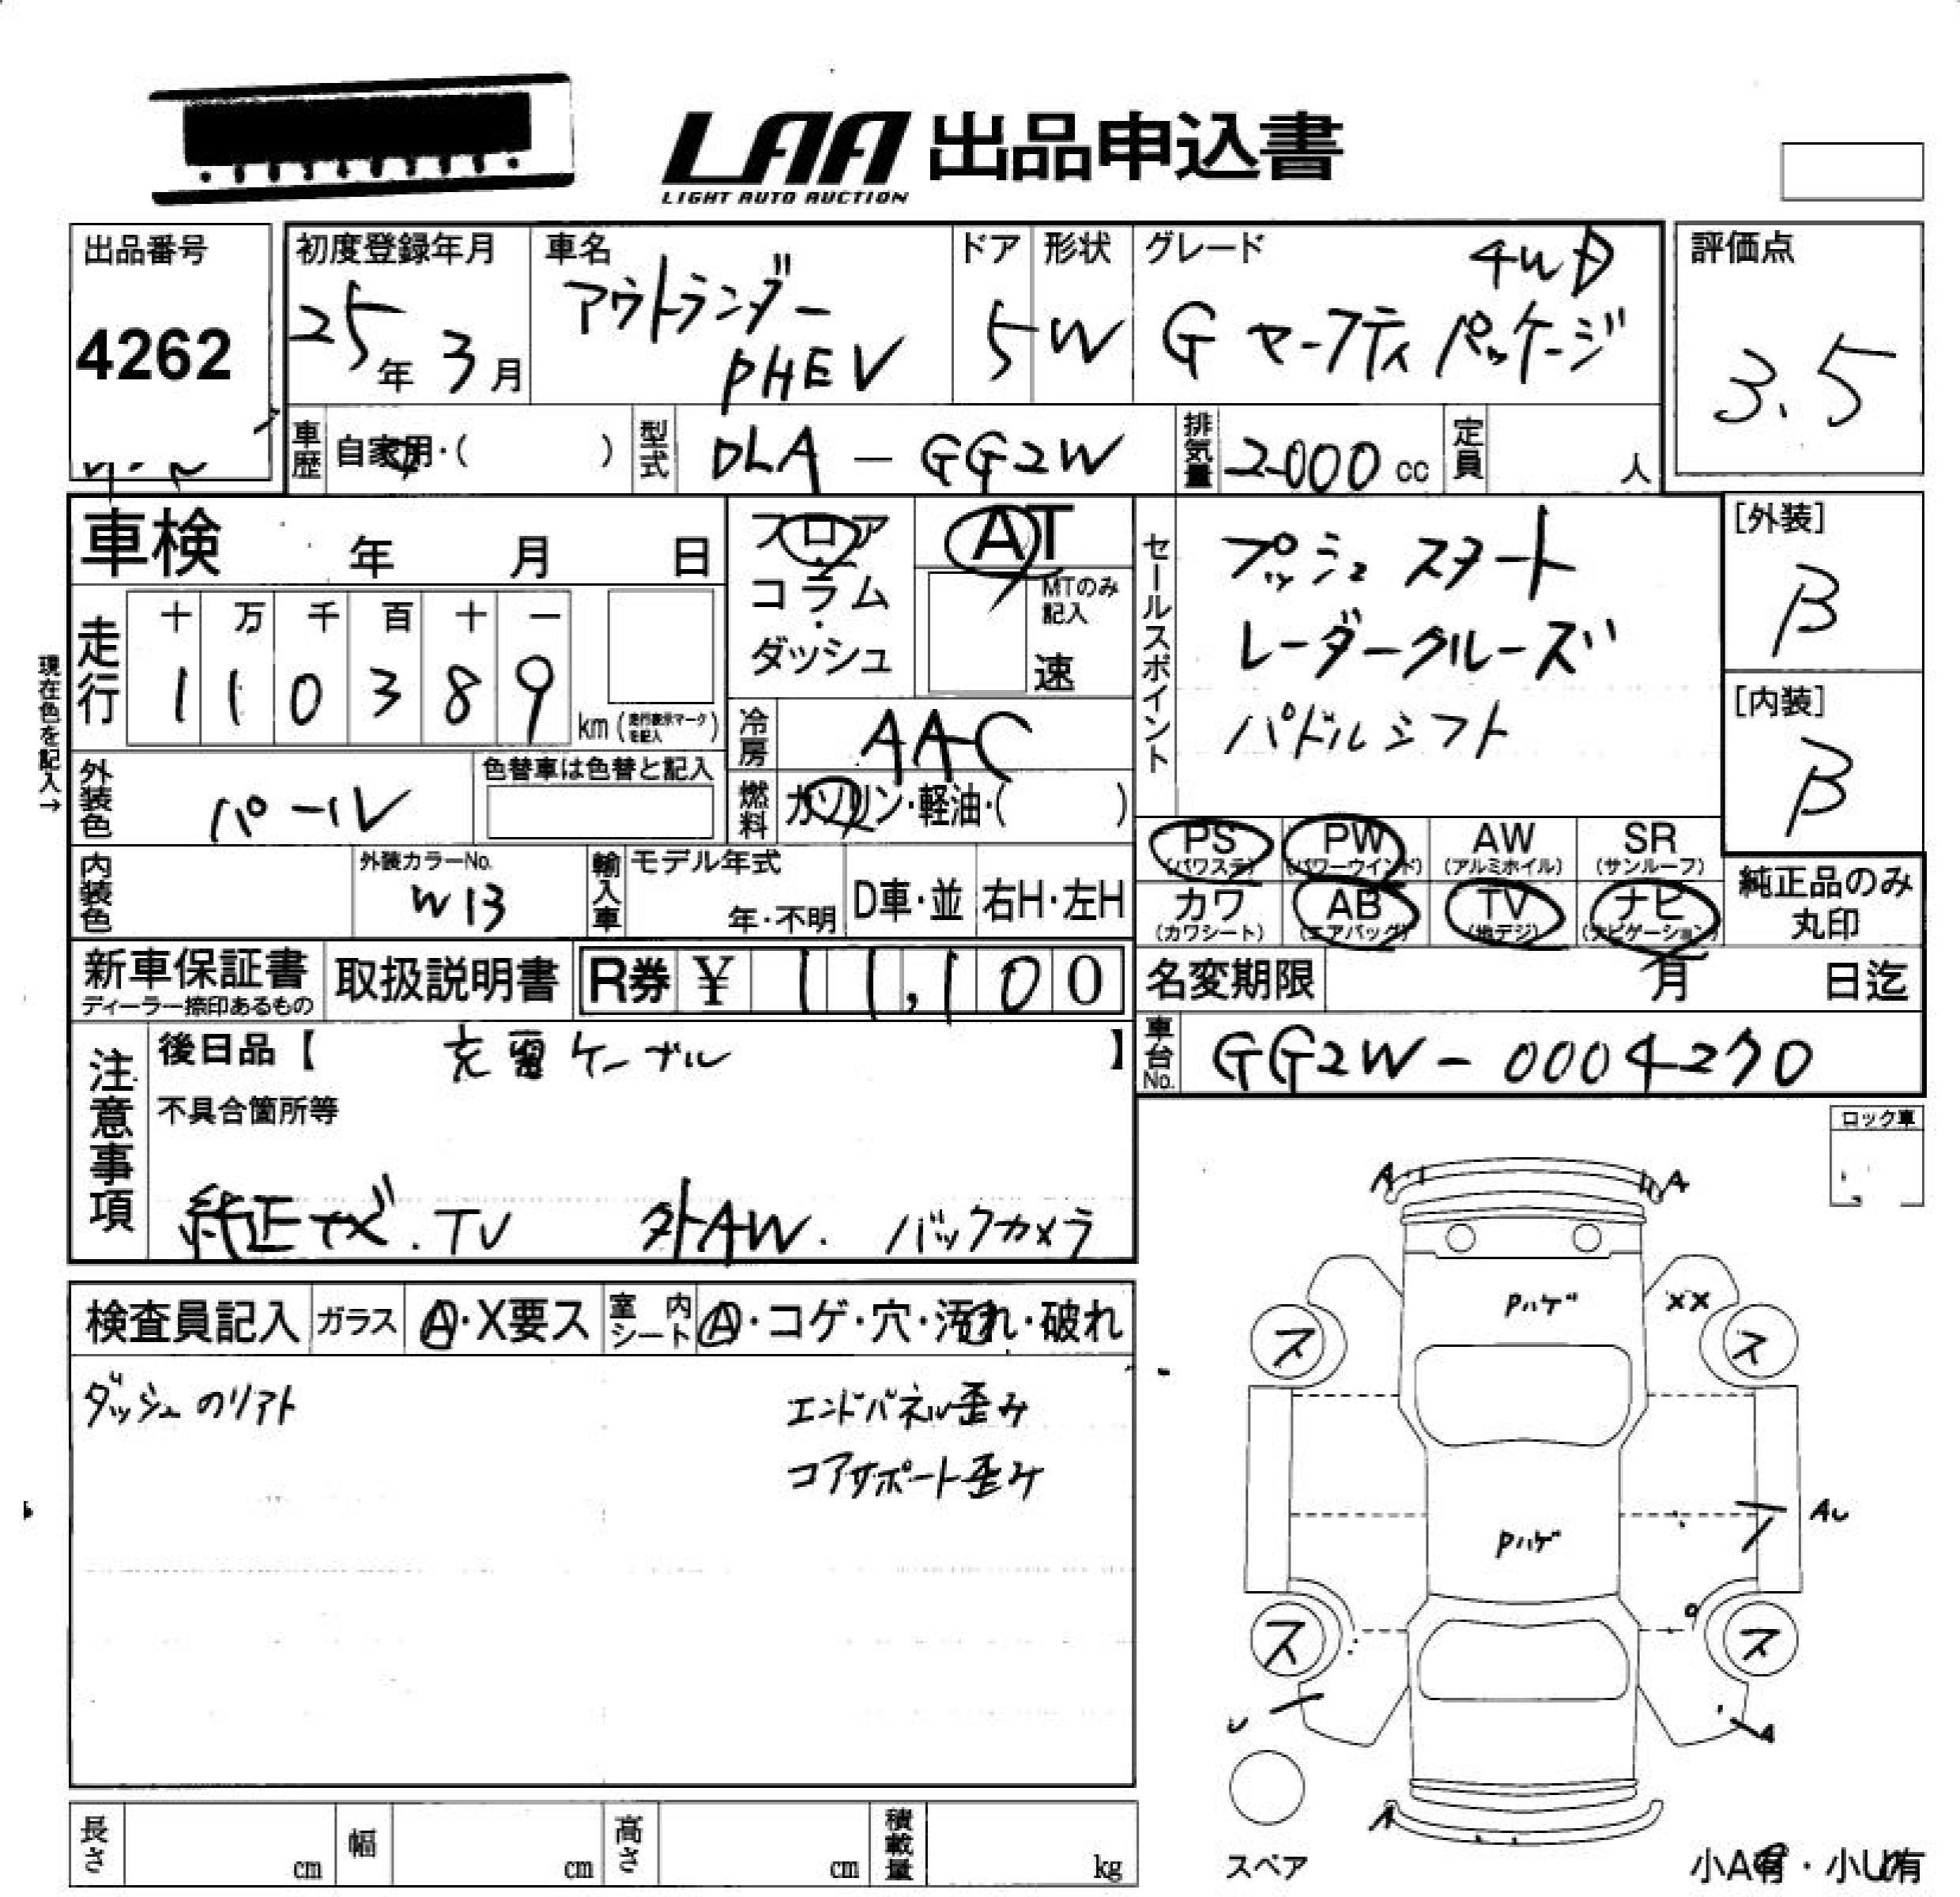 LAA 出品申込書
LIGHT AUTO AUCTION
出品番号
4262
初度登録年月
25年 3月
車名
アウトランダー
PHEV
ドア
5
形状
W
グレード
4WD
G セーフティ パッケージ
評価点
3.5
車歴 自家用・( )
型式 DLA - GG2W
排気量 2000 cc
定員 人
車検 年 月 日
フロア・コラム・ダッシュ
AT
MTのみ記入
速
セールスポイント
プッシュスタート
レーダークルーズ
パドルシフト
[外装]
B
[内装]
B
現在色を記入→
走行
十 万 千 百 十 一
1 1 0 3 8 9
km (走行表示マークを記入)
冷房 AAC
燃料 ガソリン・軽油・( )
外装色 パール
色替車は色替と記入
内装色
外装カラーNo.
W13
輸入車
モデル年式
年・不明
D車・並
右H・左H
PS (パワステ)
PW (パワーウインド)
AW (アルミホイル)
SR (サンルーフ)
カワ (カワシート)
AB (エアバッグ)
TV (地デジ)
ナビ (ナビゲーション)
純正品のみ
丸印
新車保証書
ディーラー捺印あるもの
取扱説明書
R券 ¥ 11,100
名変期限 月 日迄
車台No. GG2W-0004270
注意事項
後日品【 充電ケーブル 】
不具合箇所等
純正ナビ.TV 外AW. バックカメラ
ロック車
検査員記入
ガラス A・X要ス
室内シート A・コゲ・穴・汚れ・破れ
ダッシュのリアト
エンドパネル歪み
コアサポート歪み
A A
Pハゲ
××
ス ス
AU
Pハゲ
ス ス
U
A
A
スペア
小A有・小U有
長さ cm
幅 cm
高さ cm
積載量 kg